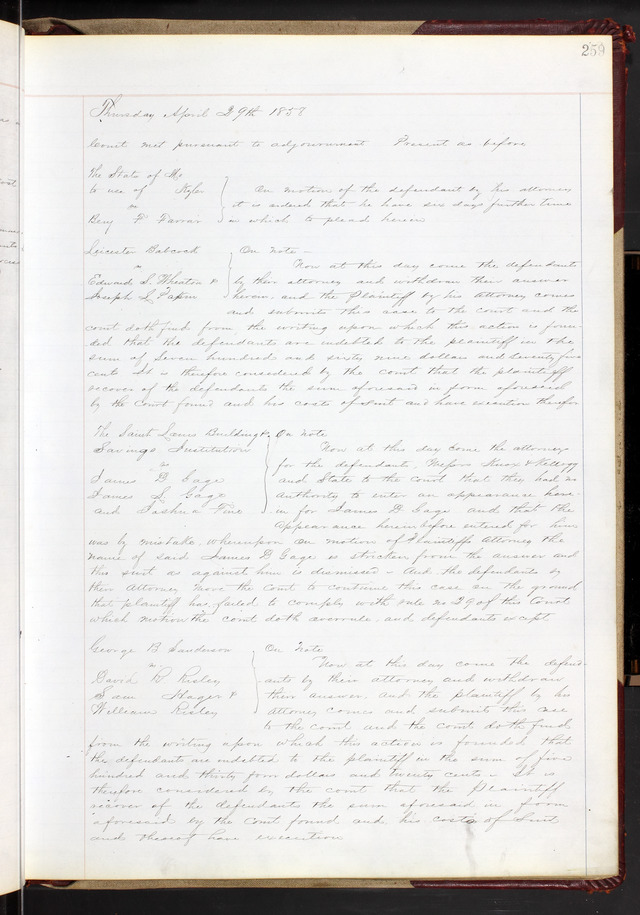 259
Thursday April 29th 1858
Court met pursuant to adjournment Present as before
The State of Mo
to use of
vs
Benj F Farrar
On motion of the defendant by his attorney
it is ordered that he have six days further time
in which to plead herein
Leicester Babcock
vs
Edward S. Wheaton &
Joseph L.
On Note —
Now at this day come the defendants
by their attorney and withdraw their answer
herein, and the Plaintiff by his Attorney comes
and submits this case to the court and the
court doth find from the writing upon which this action is foun-
ded that the defendants are indebted to the plaintiff in the
sum of Seven hundred and sixty nine dollars and Seventy five
cents It is therefore considered by the court that the plaintiff
recover of the defendants the sum aforesaid in form aforesaid
by the Court found and his costs of Suit and have execution therefor
The Saint Louis Building &
Savings Institution
vs
James D Gage
James S. Gage
and
On Note
Now at this day come the attorneys
for the defendants, Messrs Knox & Kellogg
and State to the Court that they had no
authority to enter an appearance here-
in for James D Gage and that the
appearance hereinbefore entered for him
was by mistake, whereupon on motion of Plaintiffs Attorney the
name of said James D Gage is stricken from the answer and
this suit as against him is dismissed — And the defendants by
their Attorney move the Court to continue this case on the ground
that plaintiff has failed to comply with rule no 29 of this Court
which motion the court doth overrule, and defendants except
George B Sanderson
vs
David R Risley
Sam Hager &
William Risley
On Note
Now at this day come the defend-
ants by their attorney and withdraw
their answer, and the plaintiff by his
attorney comes and submits this case
to the court and the court doth find
from the writing upon which this action is founded that
the defendants are indebted to the plaintiff in the sum of five
hundred and thirty four dollars and twenty cents — It is
therefore considered by the court that the Plaintiff
recover of the defendants the sum aforesaid in form
aforesaid by the Court found and his costs of Suit
and thereof have execution